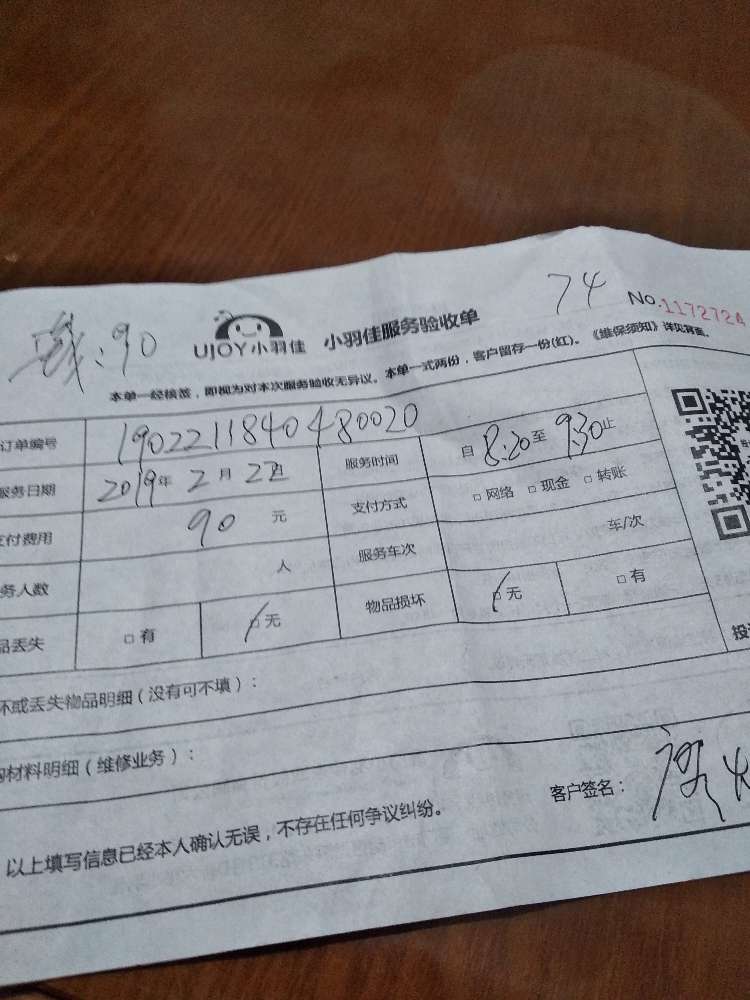 :90 UJOY小羽佳 小羽佳服务验收单 74 No.1172724
本单一经核签，即视为对本次服务验收无异议。本单一式两份，客户留存一份(红)。《维保须知》详见背面。
订单编号 1902211840480020
服务日期 2019年2月22日 服务时间 自8:20至930止
支付费用 90元 支付方式 □网络 □现金 □转账
务人数 人 服务车次 车/次
品丢失 □有 □无 物品损坏 □无 □有
坏或丢失物品明细(没有可不填)：
材料明细(维修业务)：
客户签名：
以上填写信息已经本人确认无误，不存在任何争议纠纷。